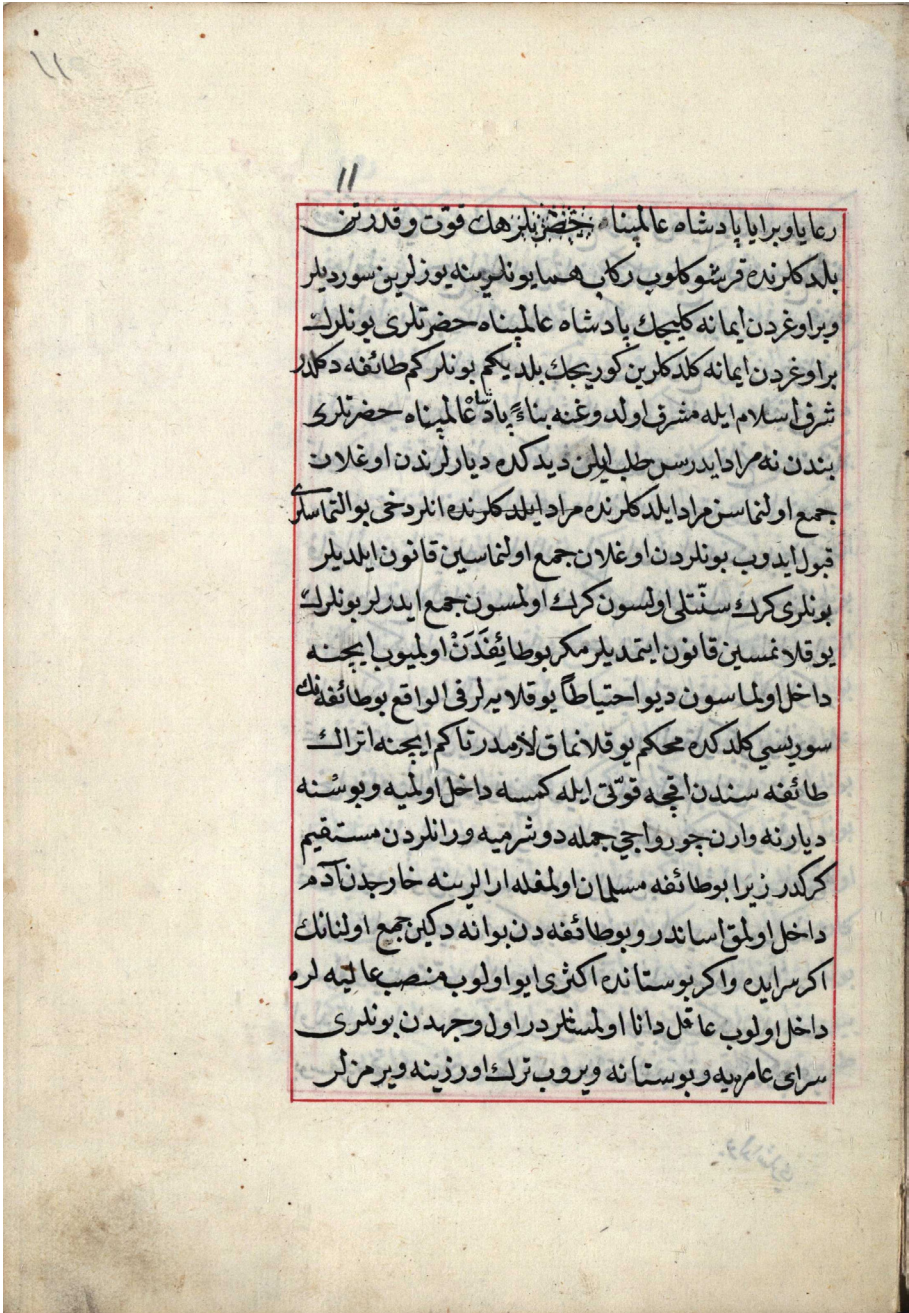 ١١
11
رعايا و برايا پادشاه عالمپناه حضرتلرينك قوّت و قدرتن
بلدكلرنده قرشو كلوب ركاب همايونلرينه يوزلرين سورديلر
و براوغردن ايمانه كليجك پادشاه عالمپناه حضرتلرى بونلرك
براوغردن ايمانه كلدكلرين كوريجك بلديكم بونلر كم طائفه دكلدر
شرف اسلام ايله مشرف اولدوغنه بناءً پادشاه عالمپناه حضرتلرى
بندن نه مراد ايدرسز طلب ايلن ديدكده ديارلرندن اوغلان
جمع اولنماسن مراد ايلدكلرنده مراد ايلدكلرنده انلر دخى بو التماسلرى
قبول ايدوب بونلردن اوغلان جمع اولنماسين قانون ايلديلر
بونلرى كرك سنّتلى اولسون كرك اولمسون جمع ايدرلر بونلرك
يوقلانمسين قانون ايتمديلر مكر بو طائفَدَنْ اولميوب ايچنه
داخل اولماسون ديو احتياطاً يوقلايه لر فى الواقع بو طائفه نك
سوريسي كلدكده محكم يوقلانماق لازمدر تاكم ايچنه اتراك
طائفه سندن اقچه قوّتى ايله كمسه داخل اولميه و بوسنه
ديارنه وارن چورواجي جمله دوشرميه ورانلردن مستقيم
كركدر زيرا بو طائفه مسلمان اولمغله ارالرينه خارجدن آدم
داخل اولمق اساندر و بو طائفه دن بوانه دكين جمع اولنانك
اكر سرايده و اكر بوستانده اكثرى ايو اولوب منصب عاليه لره
داخل اولوب عاقل دانا اولمشلردر اول وجهدن بونلرى
سراى عامريه و بوستانه ويروب ترك اورزينه ويرمزلر
بولانلري